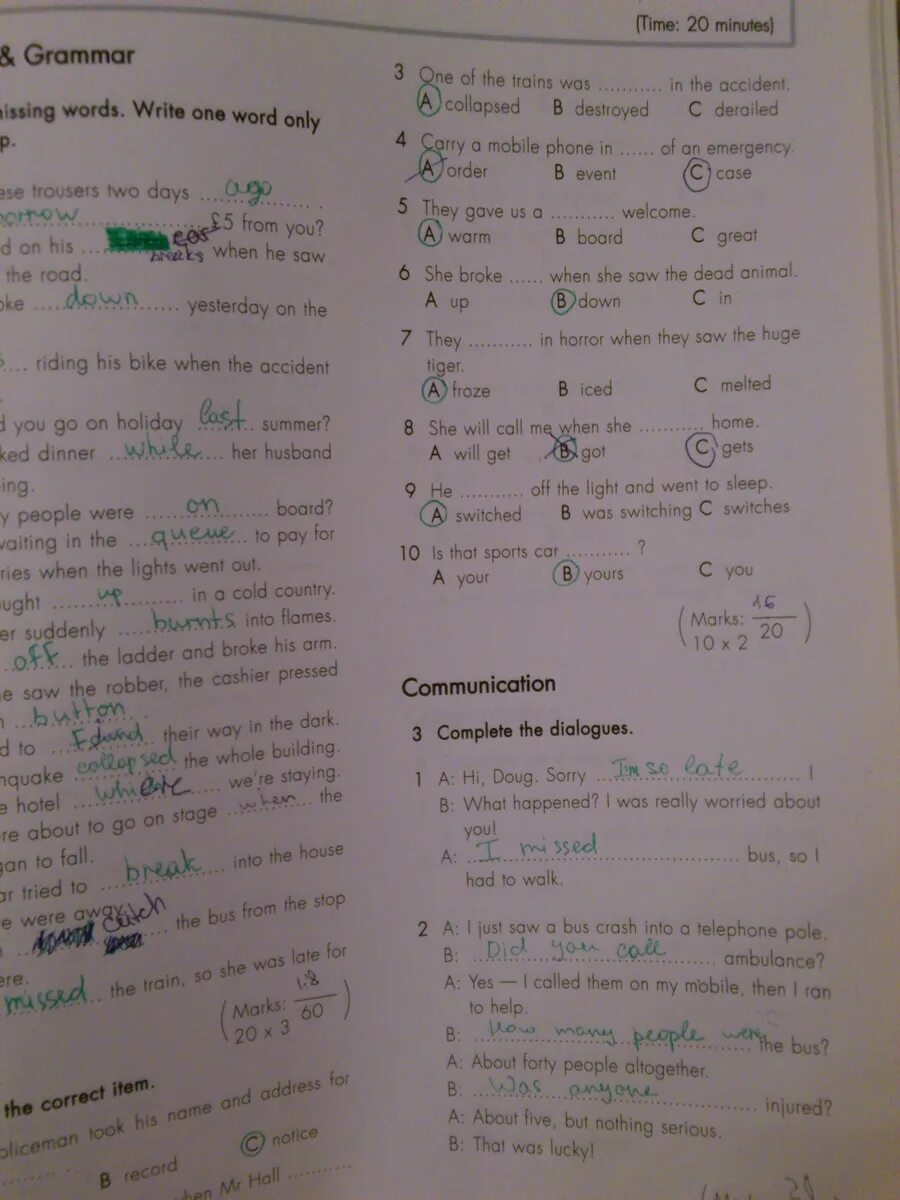 (Time: 20 minutes)
& Grammar
missing words. Write one word only
p.
ese trousers two days ago.
orrow £5 from you?
d on his ear breaks when he saw
the road.
oke down yesterday on the
riding his bike when the accident
d you go on holiday last summer?
ked dinner while her husband
ing.
y people were on board?
waiting in the queue to pay for
ries when the lights went out.
ought up in a cold country.
er suddenly burnts into flames.
off the ladder and broke his arm.
e saw the robber, the cashier pressed
button.
d to Found their way in the dark.
hquake collapsed the whole building.
e hotel where we're staying.
re about to go on stage when the
gan to fall.
ar tried to break into the house
e were away.
catch the bus from the stop
ere.
missed the train, so she was late for
(Marks: 18/60)
20 x 3
the correct item.
oliceman took his name and address for
B record C notice
hen Mr Hall
3 One of the trains was ........... in the accident.
A collapsed B destroyed C derailed
4 Carry a mobile phone in ...... of an emergency.
A order B event C case
5 They gave us a ........... welcome.
A warm B board C great
6 She broke ...... when she saw the dead animal.
A up B down C in
7 They ........... in horror when they saw the huge
tiger.
A froze B iced C melted
8 She will call me when she ........... home.
A will get B got C gets
9 He ........... off the light and went to sleep.
A switched B was switching C switches
10 Is that sports car ........... ?
A your B yours C you
(Marks: 16/20)
10 x 2
Communication
3 Complete the dialogues.
1 A: Hi, Doug. Sorry I'm so late !
B: What happened? I was really worried about
you!
A: I missed bus, so I
had to walk.
2 A: I just saw a bus crash into a telephone pole.
B: Did you call ambulance?
A: Yes — I called them on my mobile, then I ran
to help.
B: How many people were the bus?
A: About forty people altogether.
B: Was anyone injured?
A: About five, but nothing serious.
B: That was lucky!